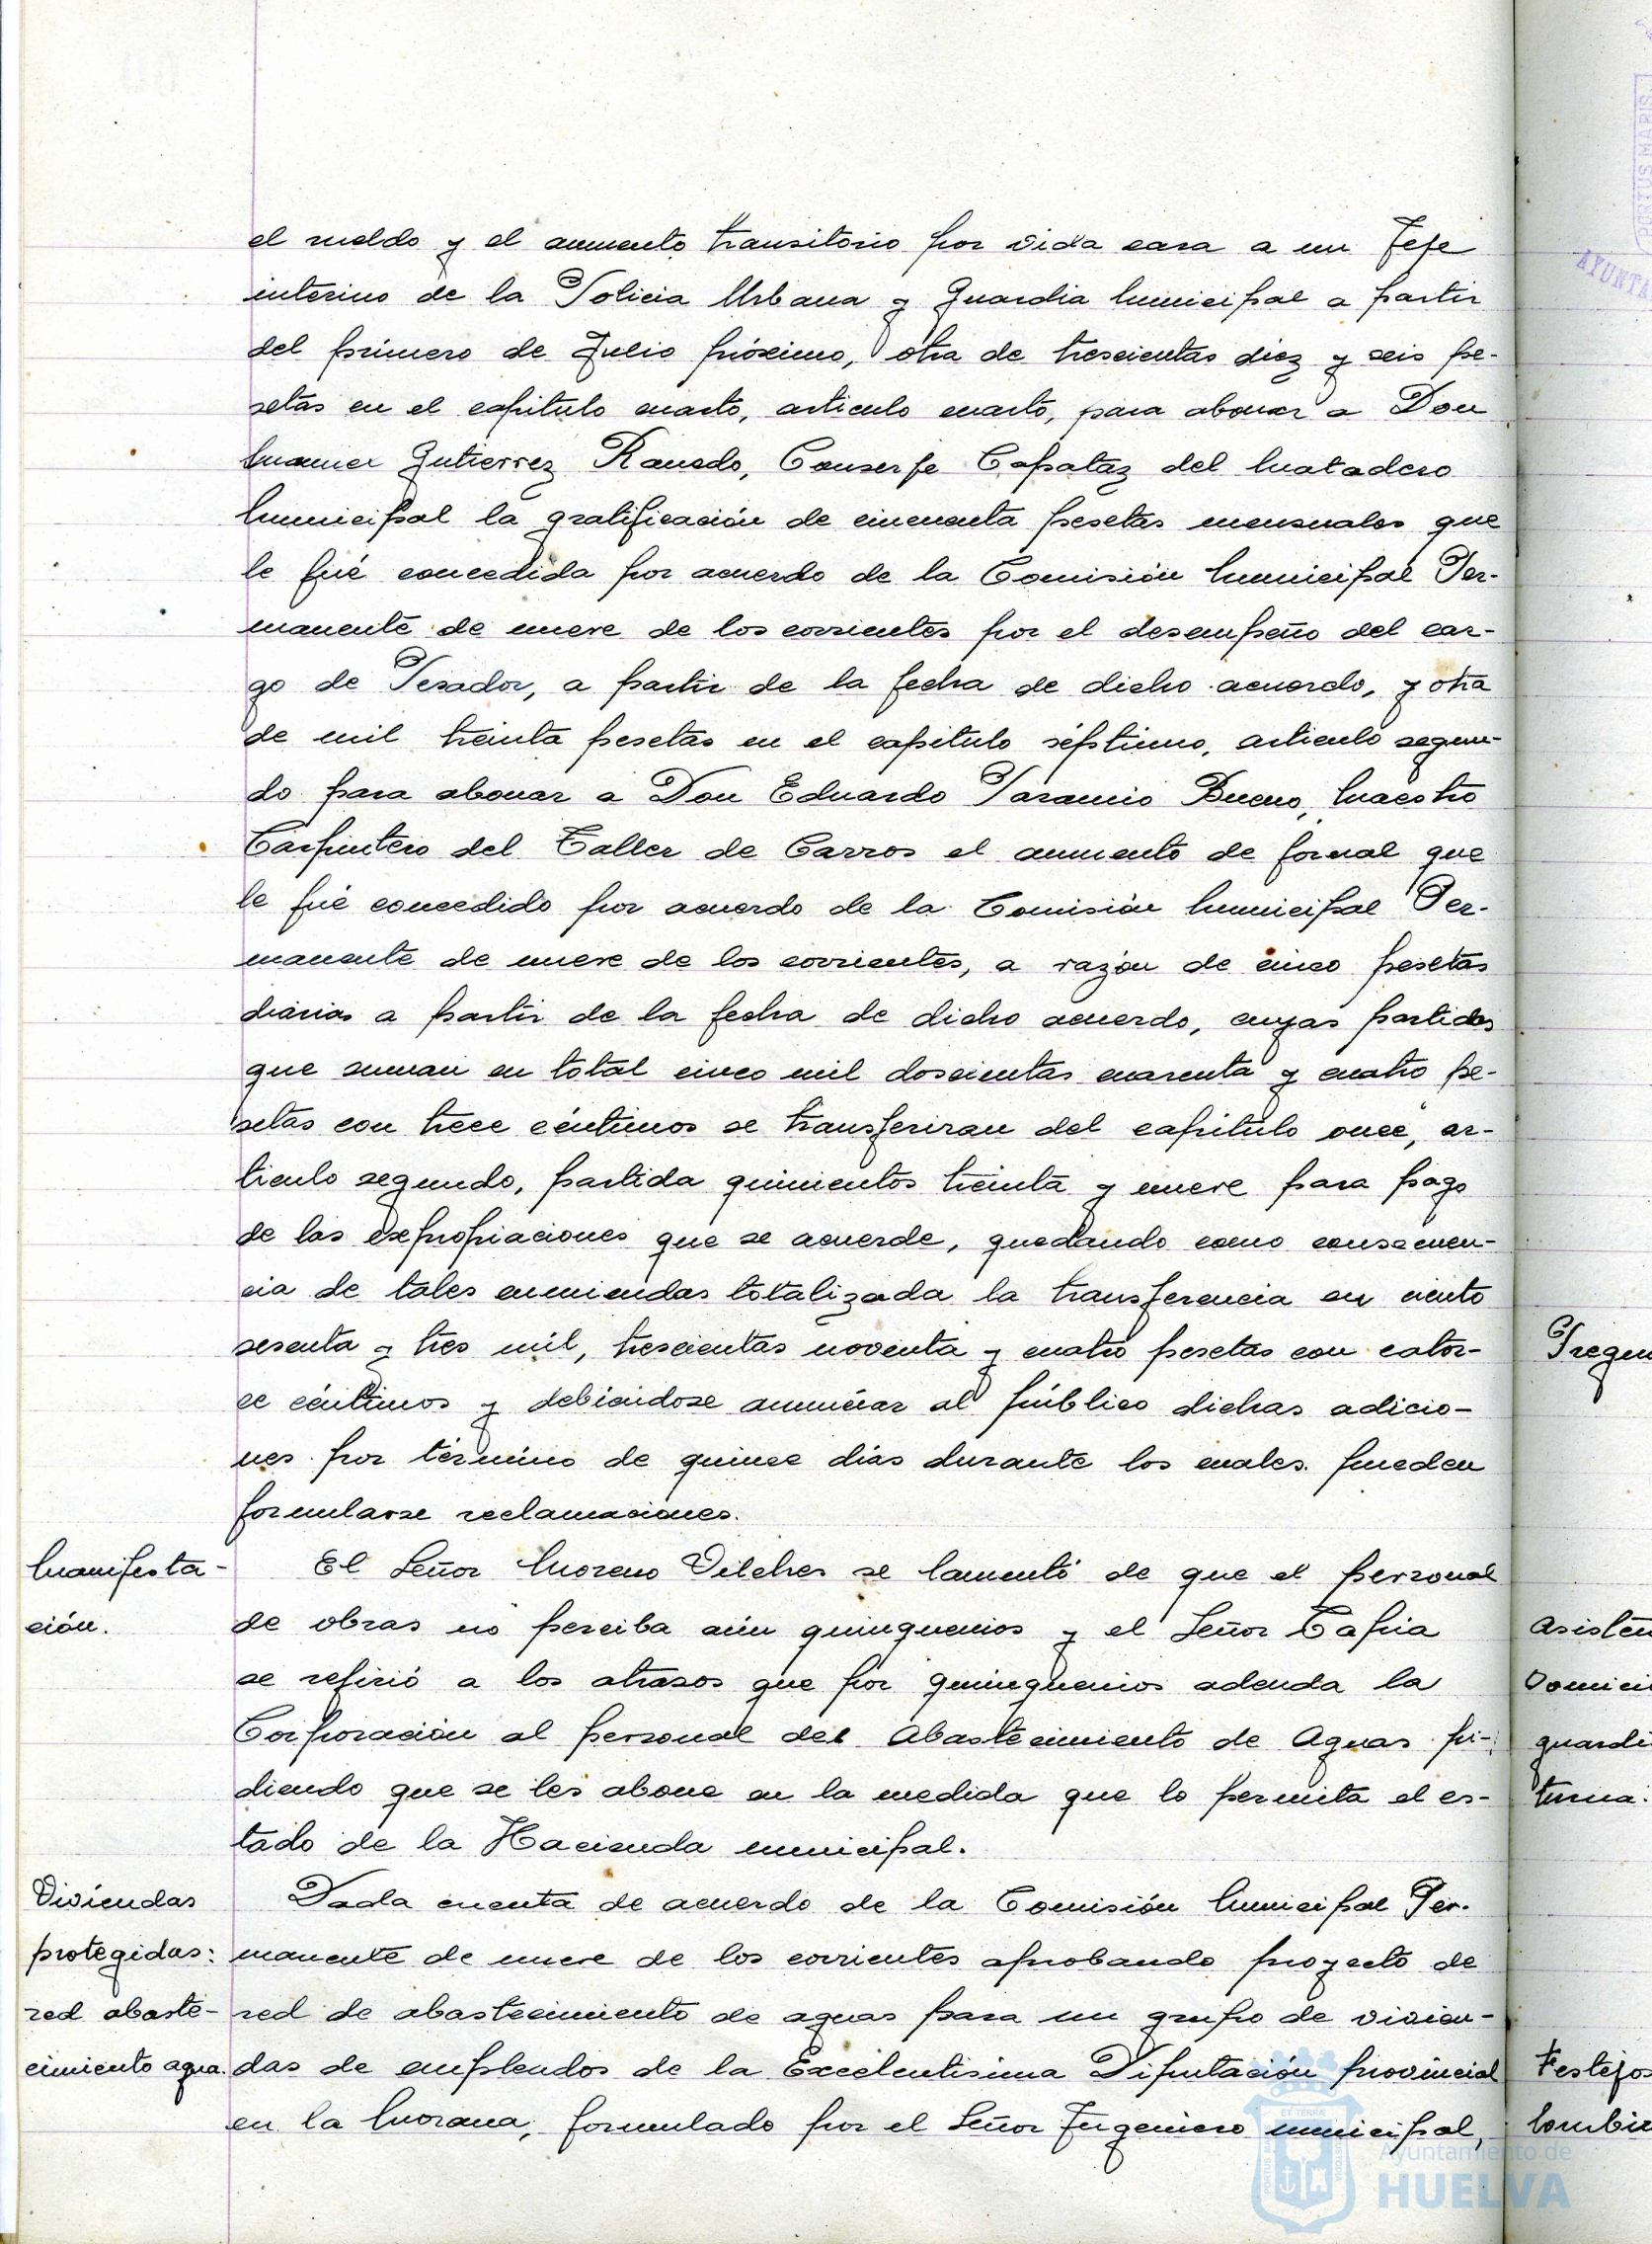 el sueldo y el aumento transitorio por vida cara a un Jefe
interino de la Policia Urbana y Guardia Municipal a partir
del primero de Julio próximo, otra de trescientas diez y seis pe-
setas en el capitulo cuarto, articulo cuarto, para abonar a Don
Manuel Gutierrez Ranedo, Conserje Capataz del Matadero
Municipal la gratificación de cincuenta pesetas mensuales que
le fué concedida por acuerdo de la Comisión Municipal Per-
manente de nueve de los corrientes por el desempeño del car-
go de Pesador, a partir de la fecha de dicho acuerdo, y otra
de mil treinta pesetas en el capitulo séptimo, articulo segun-
do para abonar a Don Eduardo Paramio Bueno, Maestro
Carpintero del Taller de Carros el aumento de jornal que
le fué concedido por acuerdo de la Comisión Municipal Per-
manente de nueve de los corrientes, a razón de cinco pesetas
diarias a partir de la fecha de dicho acuerdo, cuyas partidas
que suman en total cinco mil doscientas cuarenta y cuatro pe-
setas con trece céntimos se transferiran del capitulo once, ar-
ticulo segundo, partida quinientos treinta y nueve para pago
de las expropiaciones que se acuerde, quedando como consecuen-
cia de tales enmiendas totalizada la transferencia en ciento
sesenta y tres mil, trescientas noventa y cuatro pesetas con cator-
ce céntimos y debiendose anunciar al público dichas adicio-
nes por término de quince dias durante los cuales pueden
formularse reclamaciones.
Manifesta-
ción.
El Señor Moreno Vilches se lamentó de que el personal
de obras no perciba aún quinquenios y el Señor Tapia
se refirió a los atrasos que por quinquenios adeuda la
Corporación al personal del Abastecimiento de Aguas pi-
diendo que se les abone en la medida que lo permita el es-
tado de la Hacienda municipal.
Viviendas
protegidas:
red abaste-
cimiento agua.
Dada cuenta de acuerdo de la Comisión Municipal Per-
manente de nueve de los corrientes aprobando proyecto de
red de abastecimiento de aguas para un grupo de vivien-
das de empleados de la Excelentisima Diputación provincial
en la Morana, formulado por el Señor Ingeniero municipal,
Asisten
Domicil
guardi
turna.
Festejos
Ayuntamiento de
HUELVA